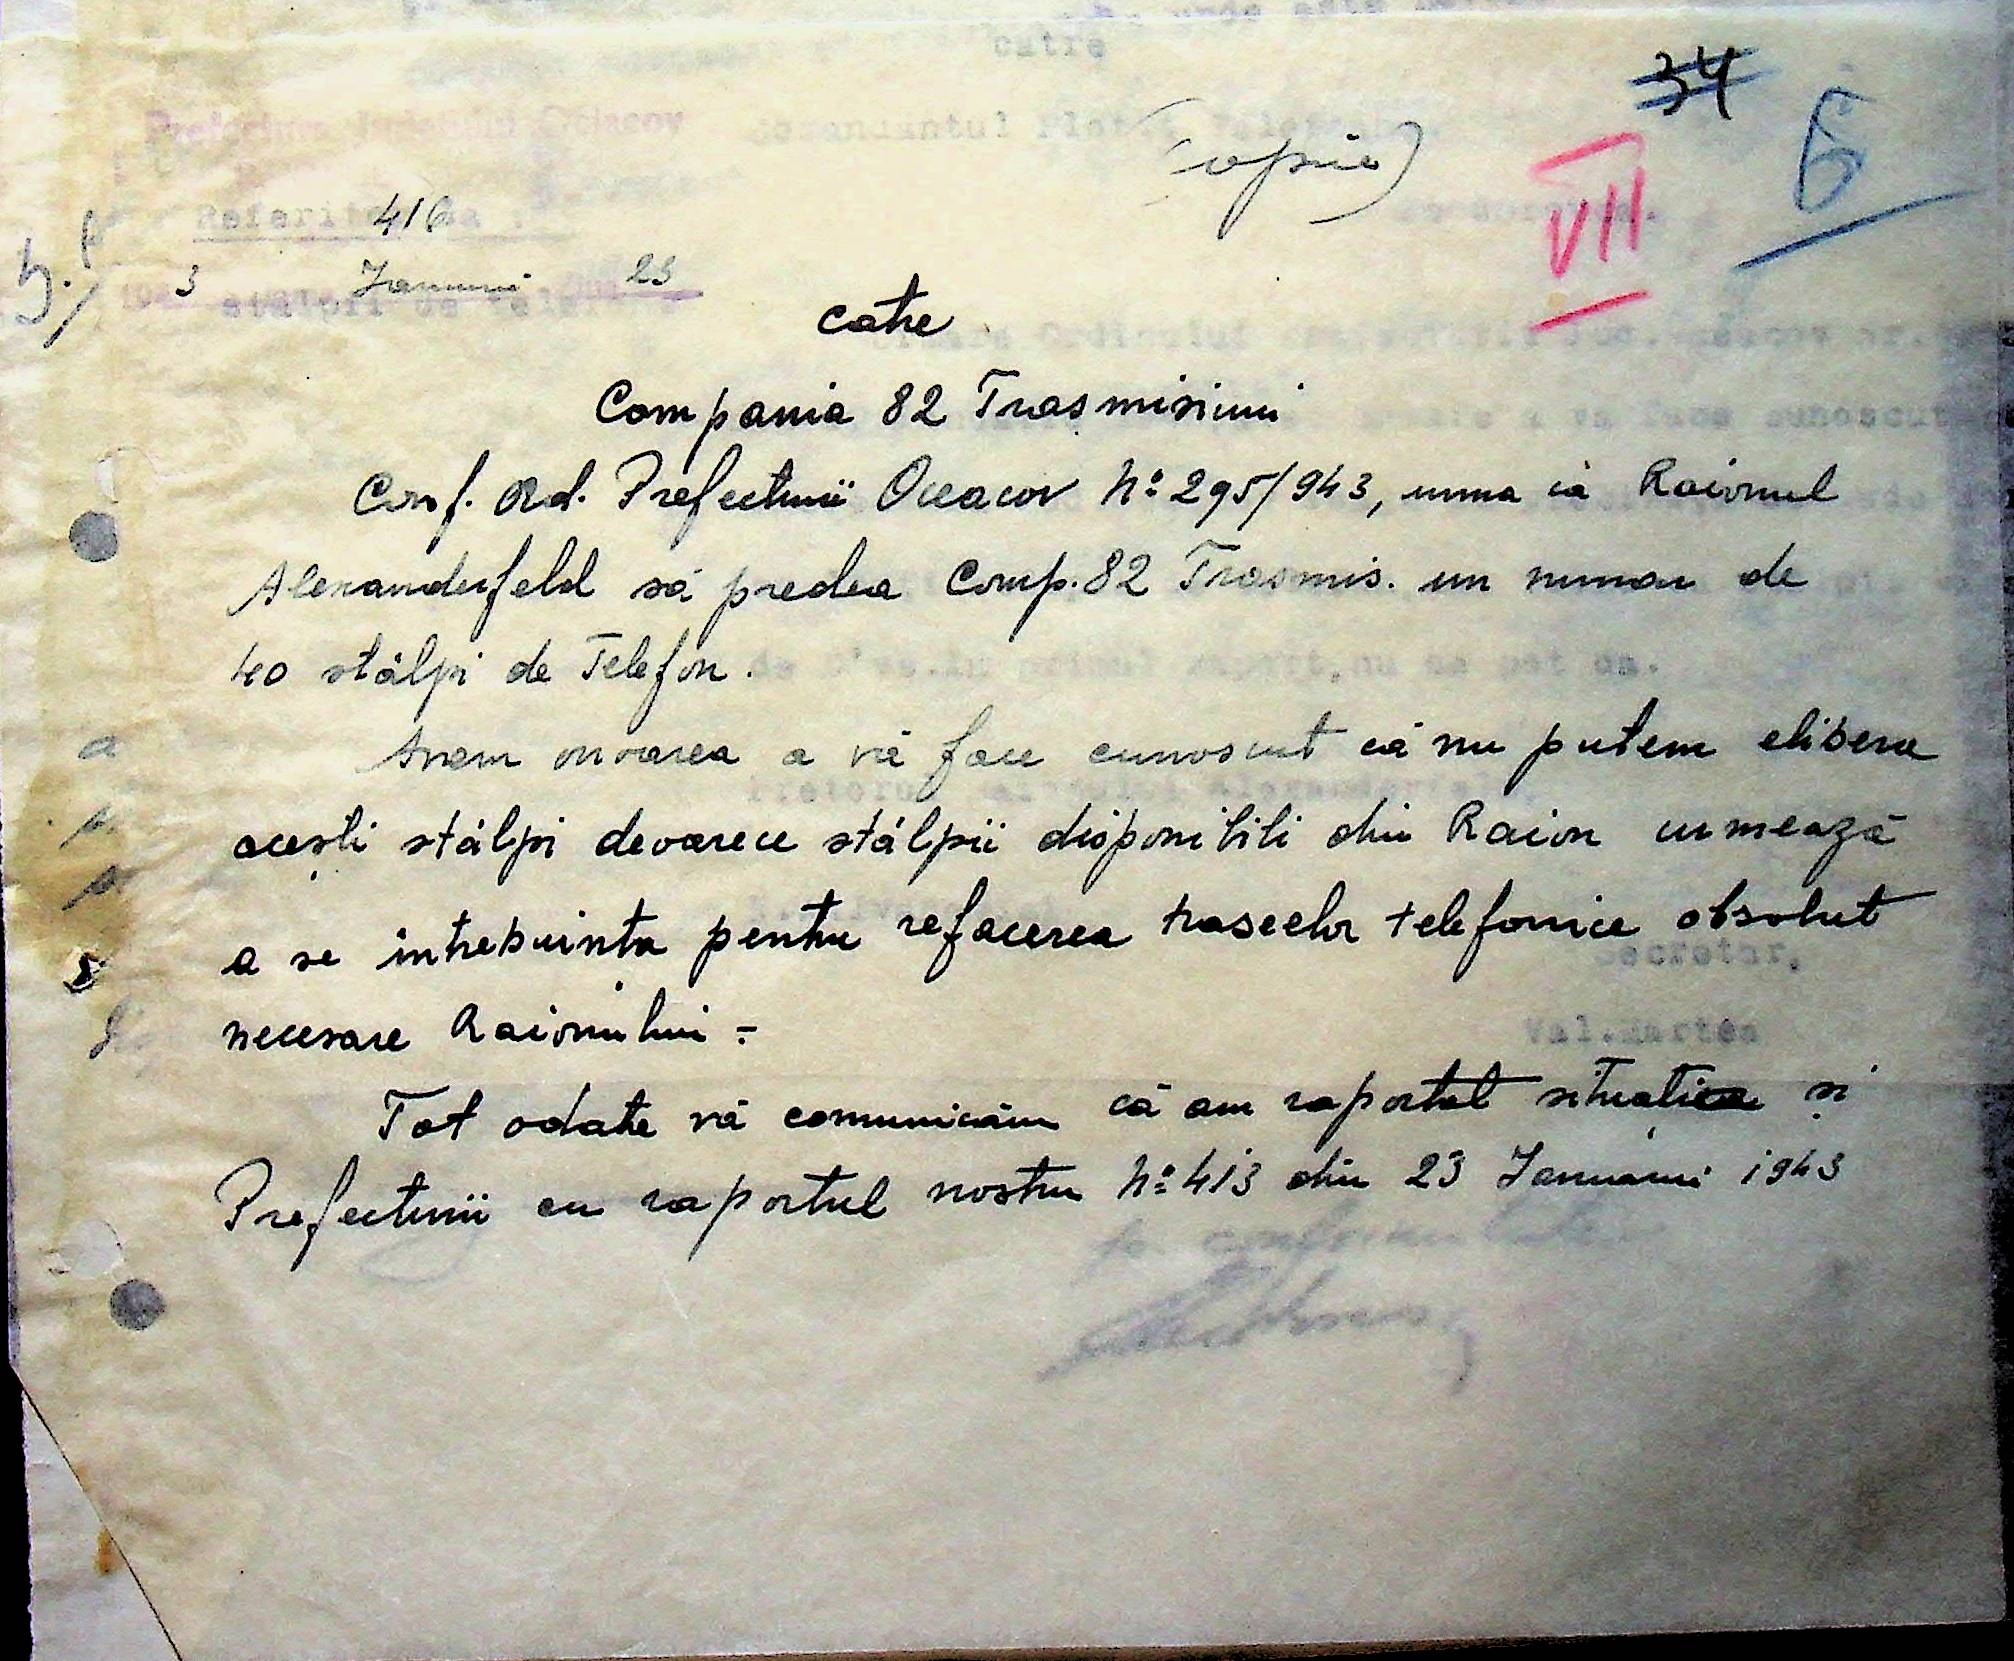 34
6
(Copie)
VII
Prefectura Judetului Oceacov
416
194 3 Ianuarii 23
catre
Compania 82 Trasmisiuni
Conf. Ord. Prefecturii Oceacov No 295/943, urma ca Raionul
Alexanderfeld să predea Comp. 82 Trasmis. un numar de
40 stâlpi de Telefon.
Avem onoarea a vă face cunoscut că nu putem elibera
acești stâlpi deoarece stâlpii disponibili din Raion urmează
a se intrebuinta pentru refacerea traseelor telefonice absolut
necesare Raionului -
Tot odate vă comunicăm că am raportat situatiea și
Prefecturii cu raportul nostru No 413 din 23 Ianuarii 1943
p. conformitate